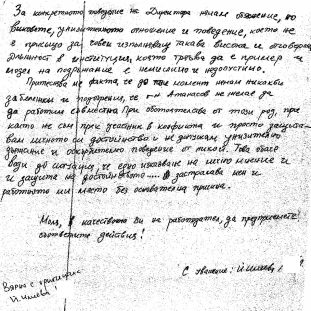 За конкретното поведение на Директора нямам обяснение, но
виковете, унизителното отношение и поведение, което не
е присъщо за човек изпълняващ такава висока и отговорна
длъжност в институция, която трябва да е пример и
модел на подражание е немислимо и недопустимо.
Притеснява ме факта, че до този момент нямам никакви
забележки и подозрения, че г-н Атанасов не желае да
да работим съвместно. При обстоятелства от този род, при
като не съм пряк участник в конфликта и просто защита-
вам личното си достойнство и не допускам унизително
държание и оскърбително поведение от никого. Това обаче
води до ситуация, че едно изказване на лично мнение и
и защита на достойнството ..... застрашава мен и
работното ми място без основателна причина.
Моля, в качеството Ви на работодател, да предприемете
съответните действия!
С уважение:
Вярно с оригинала